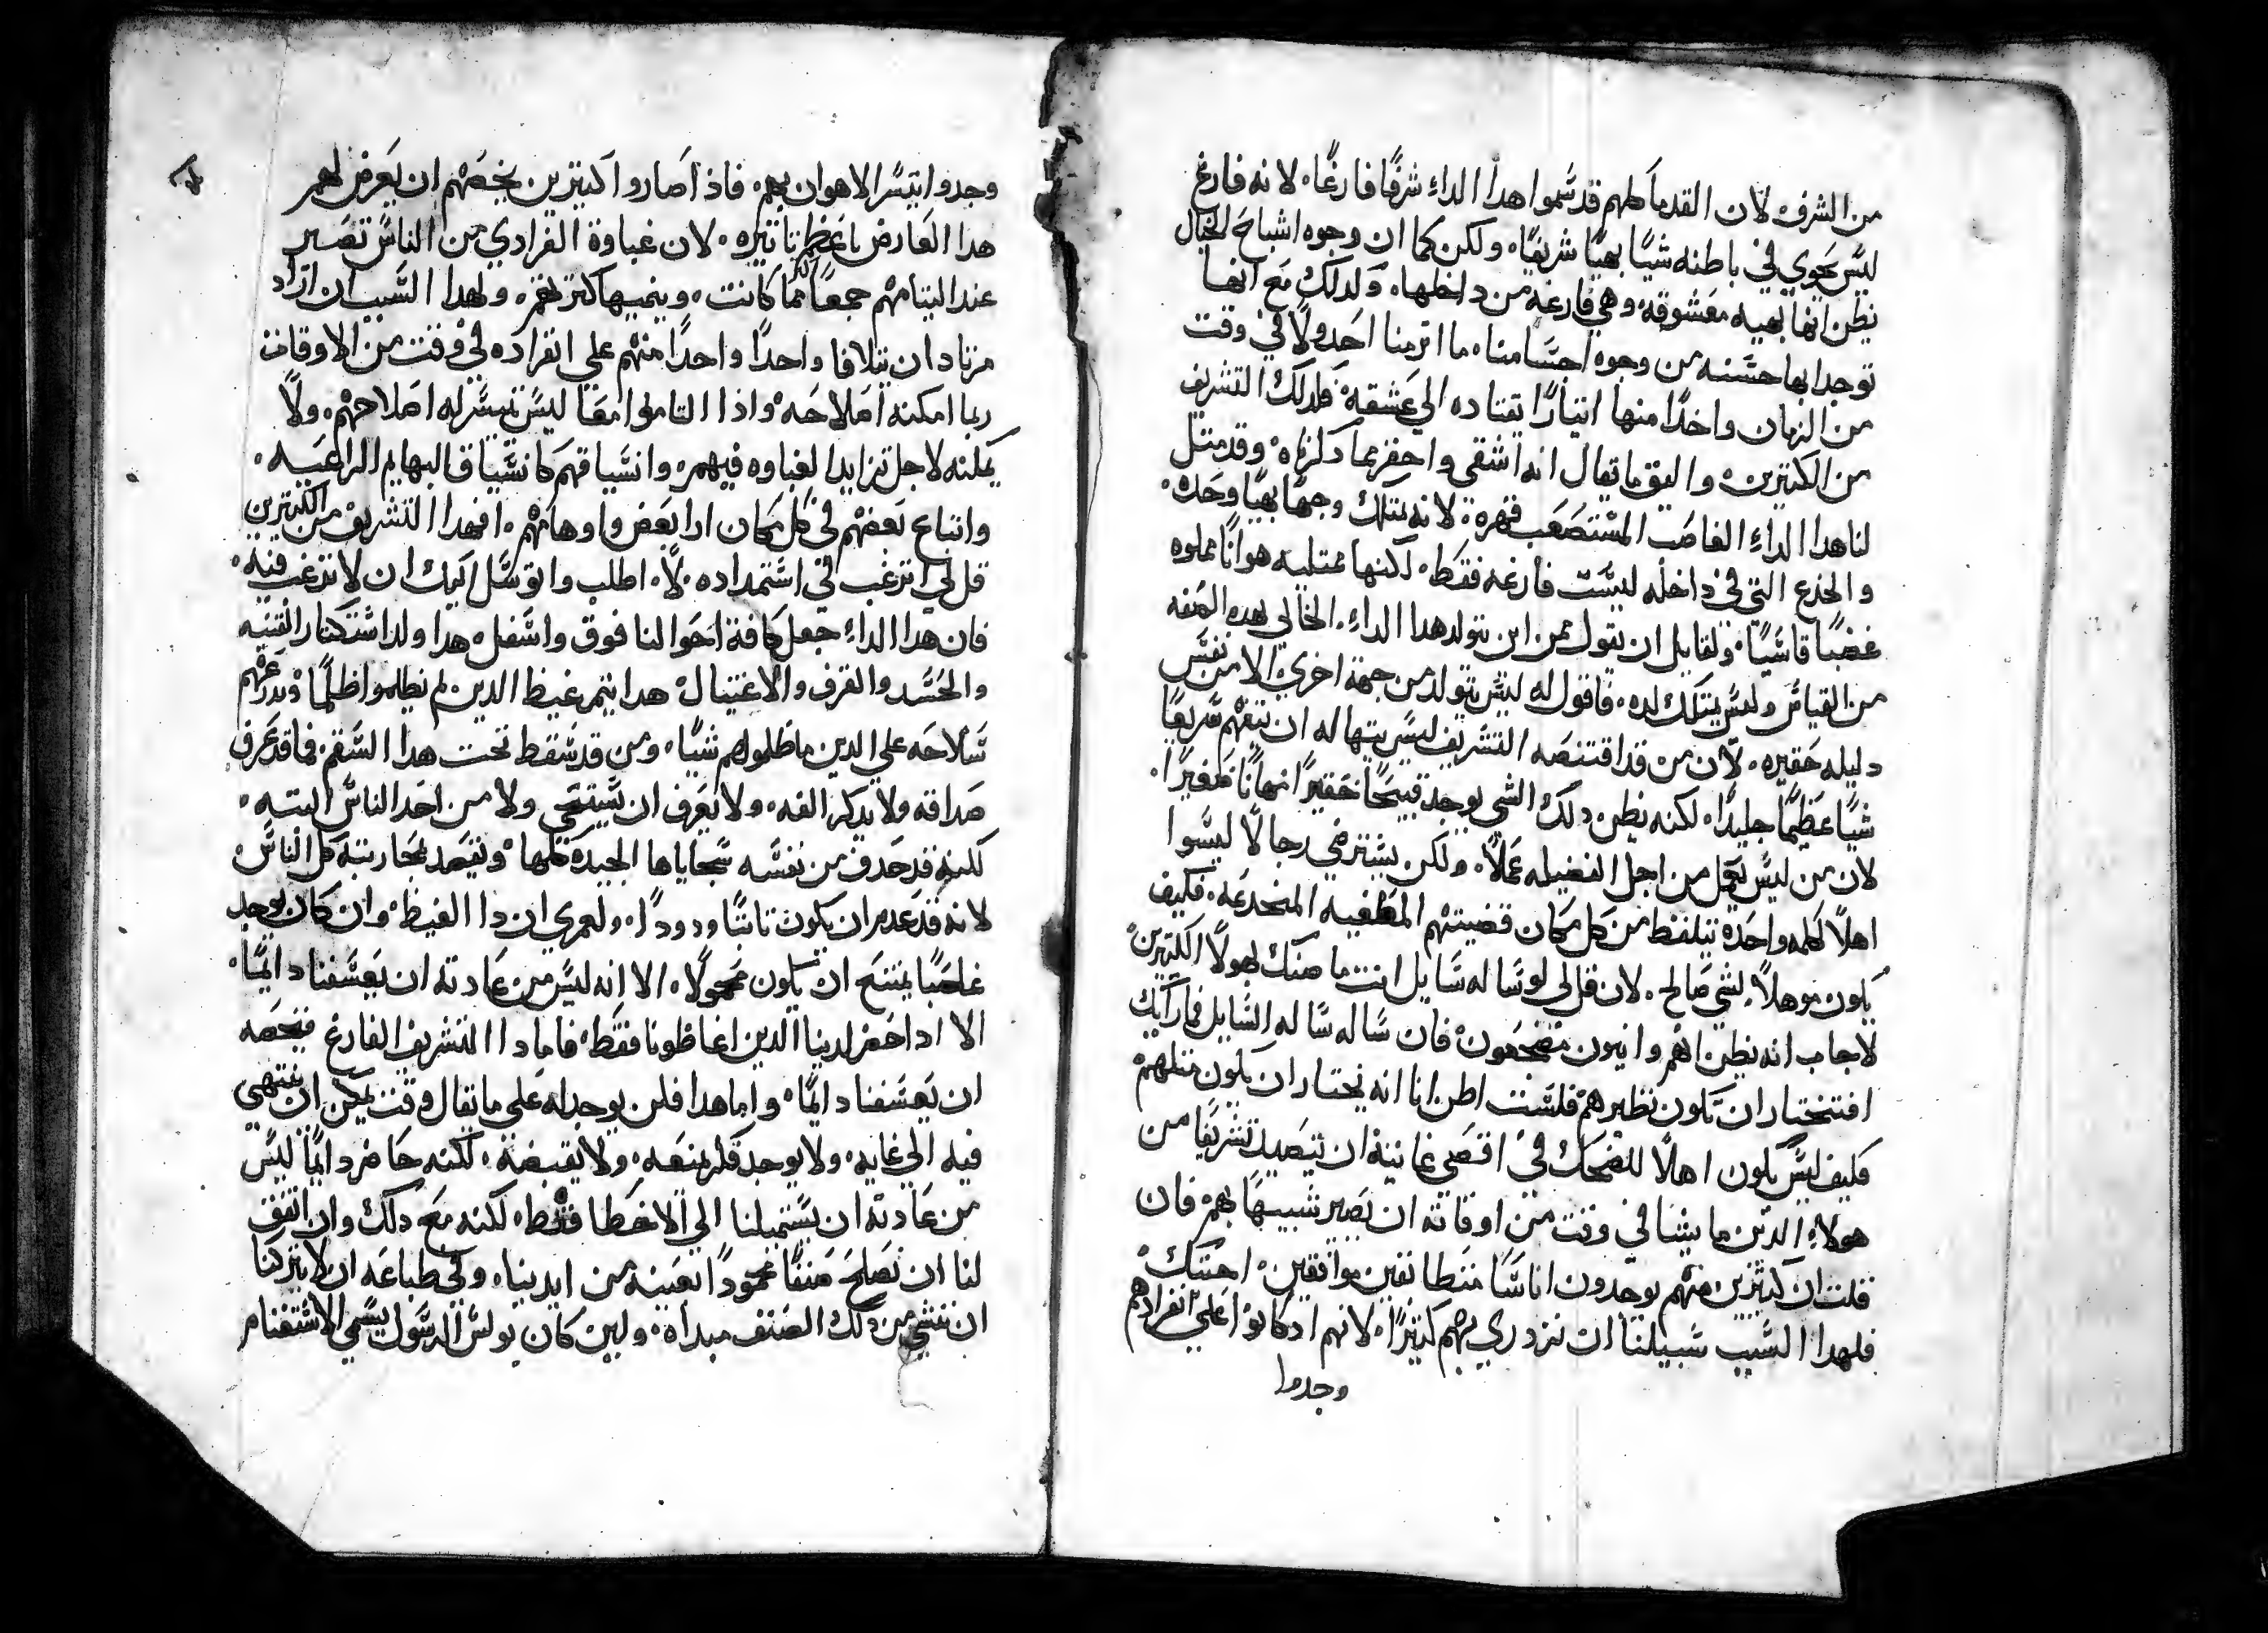 من الشرف لان القدما كلهم قد سموا هدا الداء شرفًا فارغًا، لانه فارغ
ليس يحوي في باطنه شيًا بهيًا شريفًا، ولكن كما ان وجوه اشباح الخيال
نظن انها بهيه معشوقه وهي فارغه من داخلها، ولدلك مع انها
توجد ابها حسنه من وجوه احسامنا، ما اترمنا احد ولا في وقت
من الزمان واحدًا منها اتيارًا يقتاده الي عشقه، فلدلك التشريف
من الكتيرين واليق ما يقال انه اشقى واحقر مما دكرناه، وقد متل
لنا هدا الداء الغاصب المستصعب قهره، لانه يمتلك وجهًا بهيًا وحده،
والخدع التي في داخله ليست فارغه فقط، لكنها ممتليه هوانًا مملوه
غضبًا قاسيًا، ولقايل ان يقول ممن اين يتولد هدا الداء، الخالي بهده الصفه
من القياس وليس يمتلك لده، فاقول له ليس يتولد من جهة اخري الا من نفس
دليله حقيره، لان من قد اقتنصه التشريف ليس يتهيا له ان يتفهم سريعًا
شيًا عظيمًا جليدًا، لكنه يظن دلك الشي يوجد قبيحًا حقيرًا مهانًا صغيرًا،
لان من ليس يعمل من اجل الفضيله عملًا، ولكن يسترضي رجالًا ليسوا
اهلًا كلمه واحده يتلفظ من كل مكان قضيتهم المطغيه المنخدعه، فكيف
يكون موهلًا لشي صالح، لان قل لي لو ساله سايل انت ما ضنك بهولا الكتيرين
لاجاب انه يظن انهم وانيون مضجعون، فان ساله ساله السايل فما رايك
افتختار ان تكون نظيرهم فلست اظن انا انه يختار ان يكون متلهم
فكيف ليس يكون اهلًا للضحك في اقصي غايته ان يتصيد تشريفًا من
هولاء الدين ما يشا في وقت من اوقاته ان يصير شبيهًا بهم فان
قلت ان كتيرين منهم يوجدون اناسًا متطانفين موافقين، اجبتك
فلهدا السبب سبيلنا ان نزدري بهم كتيرًا، لانهم اد كانوا علي انفرادهم
وجدوا
وجدوا اتيسر الاهوان بهم، فاذا صاروا اكتيرين يخصهم ان يعرض لهم
هدا العارض باعظم تاتيره، لان غباوة الفرادي من الناس تصير
عند اليتامهم جمعًا اكتر مما كانت، وينميها كترتهم، ولهدا السبب ان اراد
مرتاد ان يتلافا واحدًا واحدًا منهم علي انفراده في وقت من الاوقات
ربما امكنه اصلاحه، واذا التاموا معًا ليس يتيسر له اصلاحهم، ولا
يمكنه لاجل تزايد الغباوه فيهم، وانسياقهم كانسياق البهايم الراعيه،
واتباع بعضهم في كل مكان ارا بعض واوهامهم، افهدا التشريف من الكتيرين
قل لي اترغب في استمداده، لا، اطلب واتوسل اليك ان لا ترغب فيه،
فان هدا الداء جعل كافة احوالنا فوق واسفل، هدا ولد استكتار القنيه
والحسد والقرف والاغتيال، هدا يتمر غيظ الدين لم يظلموا ظلمًا، ويدرعهم
سلاحه علي الدين ما ظلموا لهم شيًا، ومن قد سقط تحت هدا السقم فما قد عرف
صداقه ولا يدكر الفه، ولا يعرف ان يستحي ولا من احد الناس البته،
لكنه قد حدف من نفسه سجاياها الجيده كلها، ويقصد بمحاربته كل الناس
لانه قد عدم ان يكون تابتًا ودودًا، ولعمري ان دا الغيظ، وان كان يوجد
غاصبًا يمتنع ان يكون محمولًا، الا انه ليس من عادته ان يعسفنا دايمًا،
الا ادا حضر لدينا الدين اغاظونا فقط، فاما دا التشريف الفارغ فيخصه
ان يعسفنا دايمًا، واما هدا فلن يوجد له علي ما يقال وقت يمكن ان ينتهي
فيه الي غايه، ولا يوجد فكر يمنعه، ولا يقبضه، لكنه حاضر دايمًا ليس
من عادته ان يستميلنا الي الاخطا فقط، لكنه مع دلك وان اتفق
لنا ان نصلح صنفًا محمودًا نعينه من ايدينا، وفي طباعه ان لا يتركنا
ان ننشي من دلك الصنف مبداه، ولين كان بولس الرسول يسمي الاستغنام